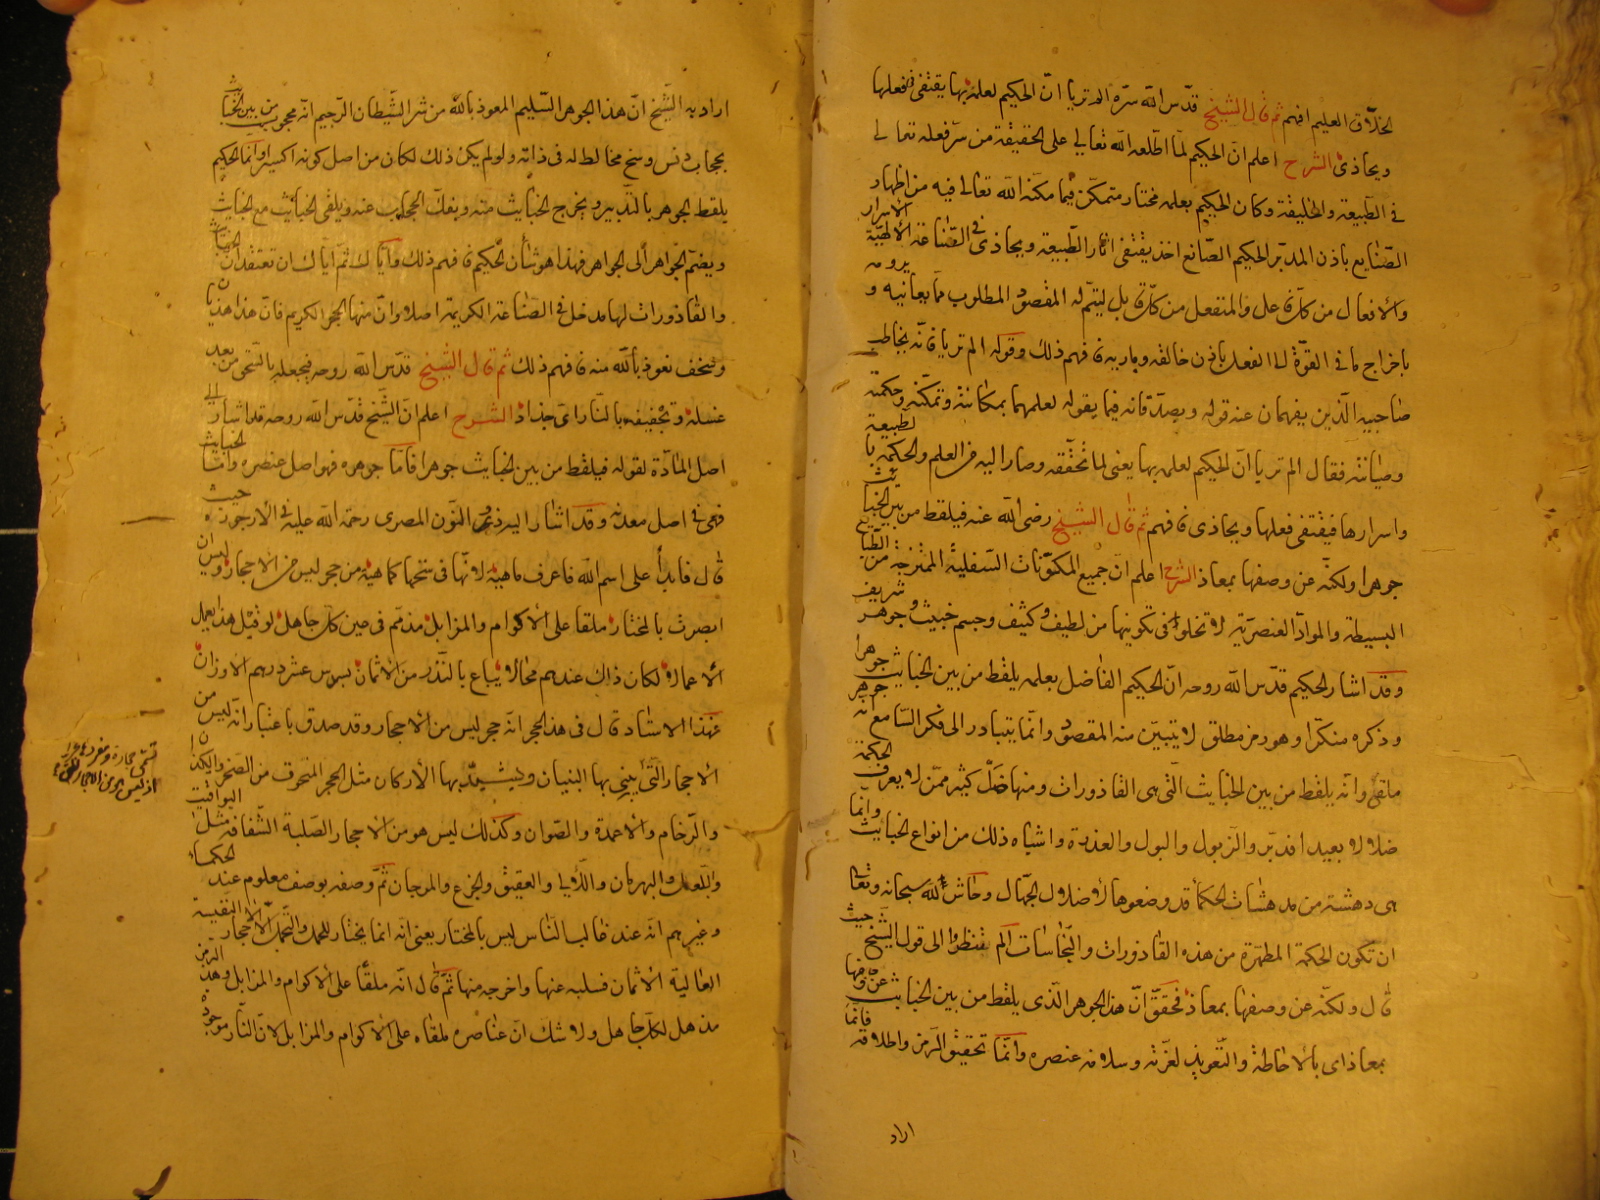 الخلاق العليم افهم ثم قال الشيخ قدس الله سره الم تريا ان الحكيم لعلمه بها يقتفى فعلها
ويحاذى الشرح اعلم ان الحكيم لما اطلعه الله تعالى على الحقيقة من سر فعله تعالى
في الطبيعة والخليقة وكان الحكيم بعلمه مختار متمكن فيما مكنه الله تعالى فيه من اظهار الاسرار
الصنايع باذن المدبر الحكيم الصانع اخذ يقتفى اثار الطبيعة ويحاذى في الصناعة الالهية
والافعال من كل فاعل والمنفعل من كل بل ليتم له المقصود المطلوب مما يعانيه و يرومه
باخراج ما في القوة الى الفعل باذن خالقه وباريه فافهم ذلك وقوله الم تريا فانه يخاطب
صاحبيه الذين يفهمان عنه قوله ويصدقانه فيما يقوله لعلمهما بمكانته وتمكنه وحكمته
وصيانته فقال الم تريا ان الحكيم لعلمه بها يعنى لما تحققه وصار اليه من العلم والحكمة بالطبيعة
واسرارها فيقتفى فعلها ويحاذى فافهم ثم قال الشيخ رضى الله عنه فيلقط من بين الخبائث
جوهرا ولكنه عن وصفها بمعاذ الشرح اعلم ان جميع المكونات السفلية الممتزجة من الطبايع
البسيطة والمواد العنصرية لا تخلو في تكوينها من لطيف وكثيف وجسم خبيث وجوهر شريف
وقد اشار الحكيم قدس الله روحه ان الحكيم الفاضل بعلمه يلقط من بين الخبايث جوهرا
وذكره منكرا وهو رمز مطلق لا يتبين منه المقصود وانما يتبادر الى فكر السامع انه جوهر
ملقى وانه يلقط من بين الخبايث التى هى القاذورات ومنها ضل كثير ممن لا يعرف الحكمة
ضلالا بعيدا فدبر والزبول والبول والعذرة واشباه ذلك من انواع الخبايث وانما
هى دهشة من مدهشات الحكماء قد وضعوها لاضلال الجهال وحاش لله سبحانه وتعالى
ان تكون الحكمة المطهرة من هذه القاذورات والنجاسات الم تنظروا الى قول الشيخ حيث
قال ولكنه عن وصفها بمعاذ فحقق ان هذا الجوهر الذى يلقط من بين الخبايث عن وصفها
بمعاذ اى بالاحاطة والتعويذ لعزته وسلامة عنصره وانما تحقيق الرمز واطلاقه فانما
اراد
اراد به الشيخ ان هذا الجوهر السليم المعوذ بالله من شر الشيطان الرجيم انه محجوب من بين الخبائث
بحجاب دنس وسخ مخالط له في ذاته ولو لم يكن ذلك لكان من اصل كونه اكسيرا وانما الحكيم
يلقط الجوهر بالتدبير ويخرج الخبايث منه ويفك الحجاب عنه ويلقى الخبايث مع الخبايث
ويضم الجواهر الى الجواهر فهذا هو شأن الحكيم فافهم ذلك واياك ثم اياك ان تعتقد ان الخبائث
والقاذورات لها مدخل في الصناعة الكريمة اصلا وان منها الحجر الكريم فان هذا هذيان
وسخف نعوذ بالله منه فافهم ذلك ثم قال الشيخ قدس الله روحه فيجعله بالسحق من بعد
غسله وتجفيفه بالنار اى جذاذ الشرح اعلم ان الشيخ قدس الله روحه قد اشار الى
اصل المادة لقوله فيلقط من بين الخبايث جوهرا فاما جوهره فهو اصل عنصره واما الخبايث
فهى في اصل معدنه وقد اشار اليه ذو النون المصرى رحمة الله عليه في الارجوزة حيث
قال فابدأ على اسم الله فاعرف ماهيه لانها في سنخها كما هيه من حجر ليس من الاحجار وليس ان
ابصرت بالمختار ملقا على الاكوام والمزابل مذمم في عين كل جاهل لو قيل هذا يعمل
الاعمالا لكان ذاك عندهم محالا يباع بالنذر من الاثمان بسدس عشر درهم الاوزان
فهذا الاستاد قال في هذا الحجر انه حجر ليس من الاحجار وقد صدق باعتبار انه ليس من
الاحجار التى يبنى بها البنيان ويشيد بها الاركان مثل الحجر المنحوت من الصخر والكذان
والرخام والاعمدة والصوان وكذلك ليس هو من الاحجار الصلبة الشفافة مثل اليواقيت
والبلعل والبهرمان واللآلى والعقيق والجزع والمرجان ثم وصفه بوصف معلوم عند الحكماء
وغيرهم انه عند غالب الناس ليس بالمختار يعنى انه انما يختار للملك والتملك الاحجار النفيسة
الغالية الاثمان فسلبه عنها واخرجه منها ثم قال انه ملقا على الاكوام والمزابل وهذا الرمز
مذهل لكل جاهل ولا شك ان عناصره ملقاه على الاكوام والمزابل لان النار موجوده